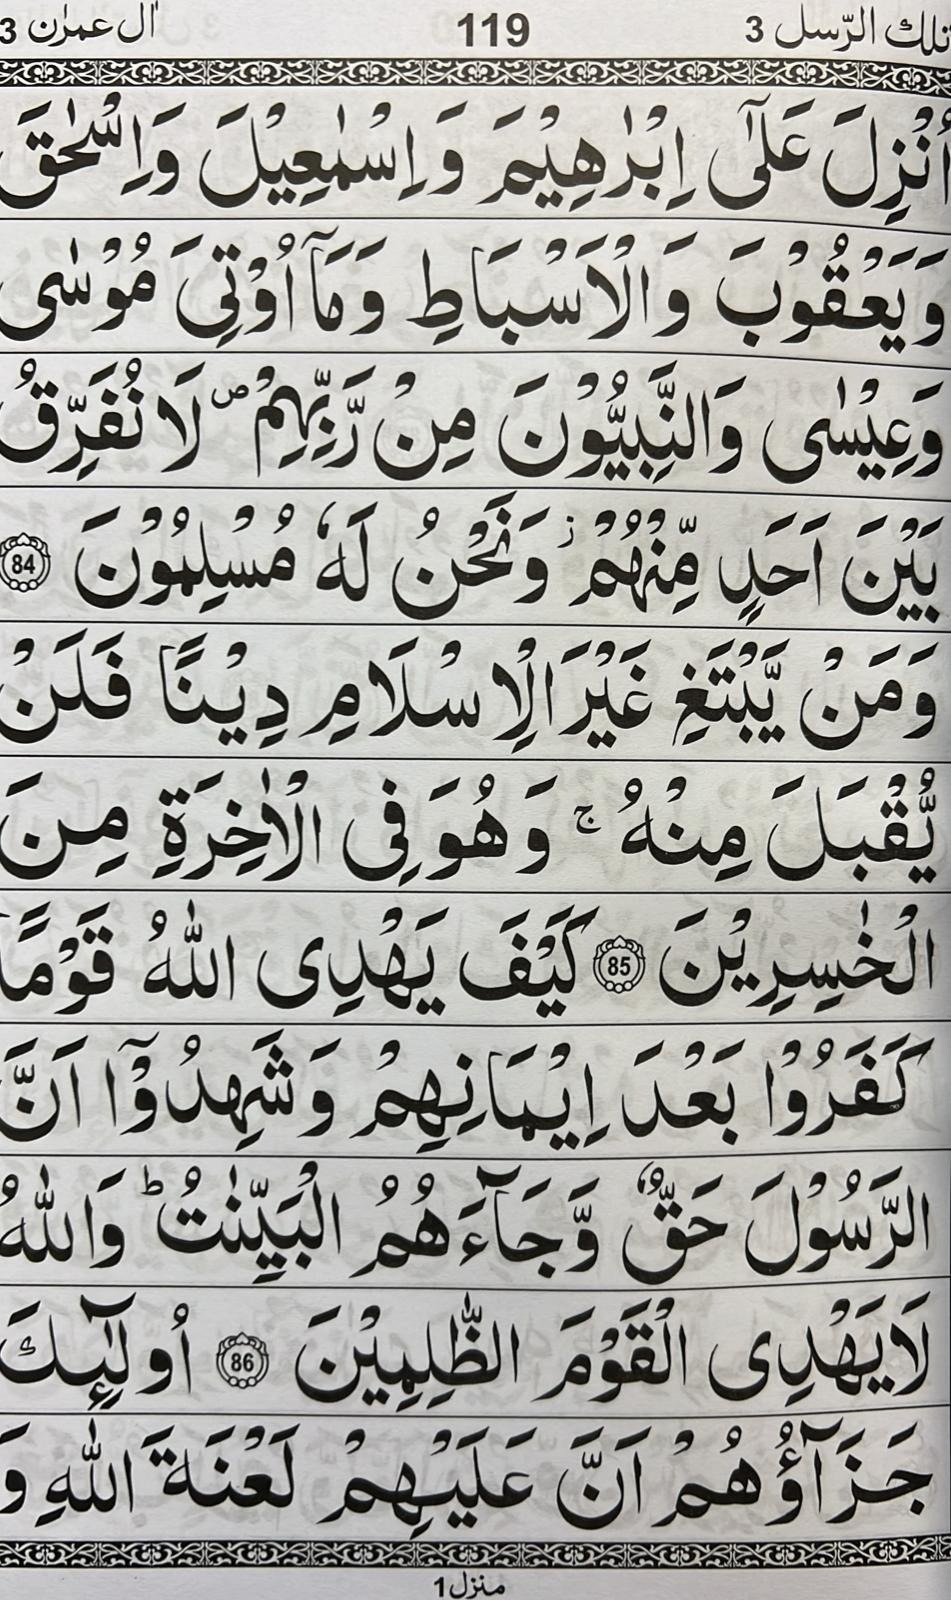 تلك الرّسل 3 119 اٰل عمرٰن 3
اُنْزِلَ عَلٰٓى اِبْرٰهِيْمَ وَ اِسْمٰعِيْلَ وَ اِسْحٰقَ
وَ يَعْقُوْبَ وَ الْاَسْبَاطِ وَ مَاۤ اُوْتِيَ مُوْسٰى
وَ عِيْسٰى وَ النَّبِيُّوْنَ مِنْ رَّبِّهِمْ ۪ لَا نُفَرِّقُ
بَيْنَ اَحَدٍ مِّنْهُمْ ؗ وَ نَحْنُ لَهٗ مُسْلِمُوْنَ 84
وَ مَنْ يَّبْتَغِ غَيْرَ الْاِسْلَامِ دِيْنًا فَلَنْ
يُّقْبَلَ مِنْهُ ۚ وَ هُوَ فِى الْاٰخِرَةِ مِنَ
الْخٰسِرِيْنَ 85 كَيْفَ يَهْدِى اللّٰهُ قَوْمًا
كَفَرُوْا بَعْدَ اِيْمَانِهِمْ وَ شَهِدُوْۤا اَنَّ
الرَّسُوْلَ حَقٌّ وَّ جَآءَهُمُ الْبَيِّنٰتُ ؕ وَ اللّٰهُ
لَا يَهْدِى الْقَوْمَ الظّٰلِمِيْنَ 86 اُولٰٓئِكَ
جَزَآؤُهُمْ اَنَّ عَلَيْهِمْ لَعْنَةَ اللّٰهِ وَ
منزل1